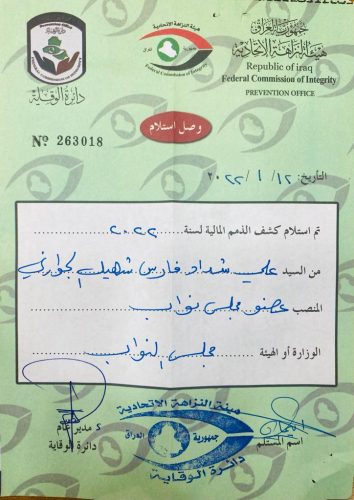 هيئة النزاهة الاتحادية
العراق
جمهورية
Federal Commission of Integrity
جمهورية العراق
هيئة النزاهة الاتحادية
Republic of iraq
Federal Commission of Integrity
PREVENTION OFFICE
دائرة الوقاية
وصل استلام
Nº 263018
التاريخ: ١٢ / ١ / ٢٠٢٢
تم استلام كشف الذمم المالية لسنة ٢٠٢٢
من السيد علي شداد فارس شهيل الجوراني
المنصب عضو مجلس نواب
الوزارة أو الهيئة مجلس النواب
هيئة النزاهة الاتحادية
جمهورية
العراق
دائرة الوقاية
اسم المستلم
مدير عام
دائرة الوقاية